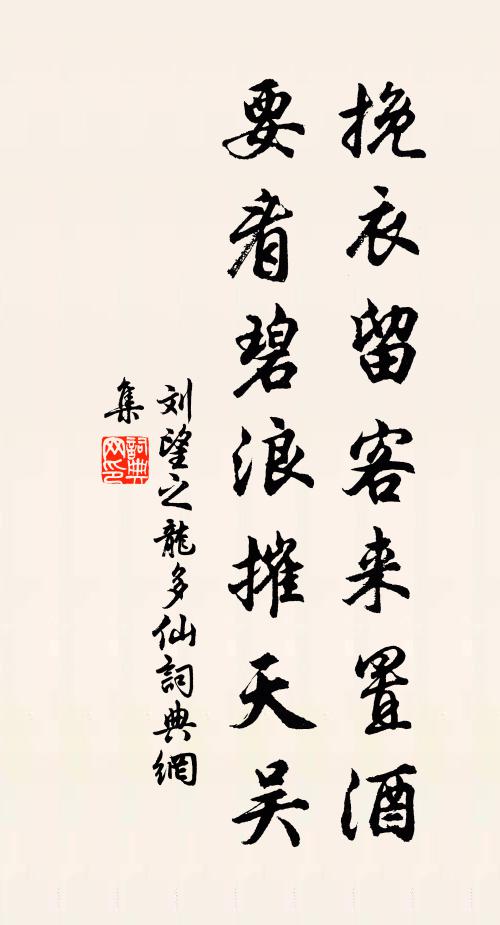 挽衣留客来置酒
要看碧浪摧天吴
刘望之龍多仙詞典網
集
詞典网印